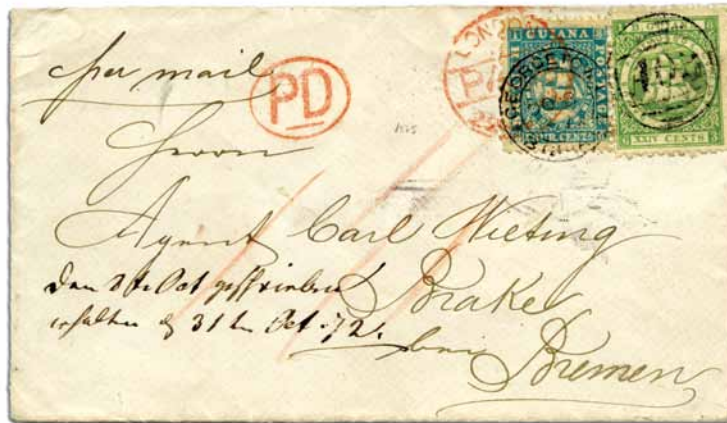 per mail
PD
LONDON
GUIANA
POSTAGE
FOUR CENTS
GEORGETOWN
XXIV CENTS
Herrn
Agent Carl Wieting
Brake
bei
Bremen
den 8 ten Oct geschrieben
erhalten d 31 ten Oct. 72.